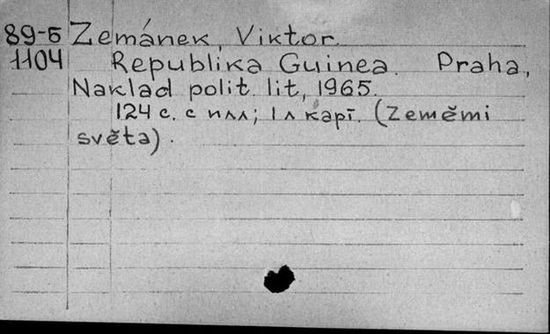 89-Б Zemánek, Viktor.
1104 Republika Guinea. Praha,
Naklad polit. lit, 1965.
124 с. с илл; 1 л карт. (Zeměmi
světa).